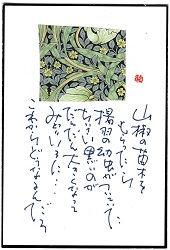 山椒の苗木を
もらったら
揚羽の幼虫がついてた
ちいさい黒いのが
だんだん大きくなって
みどりいろに…
これからどうなるんだろ